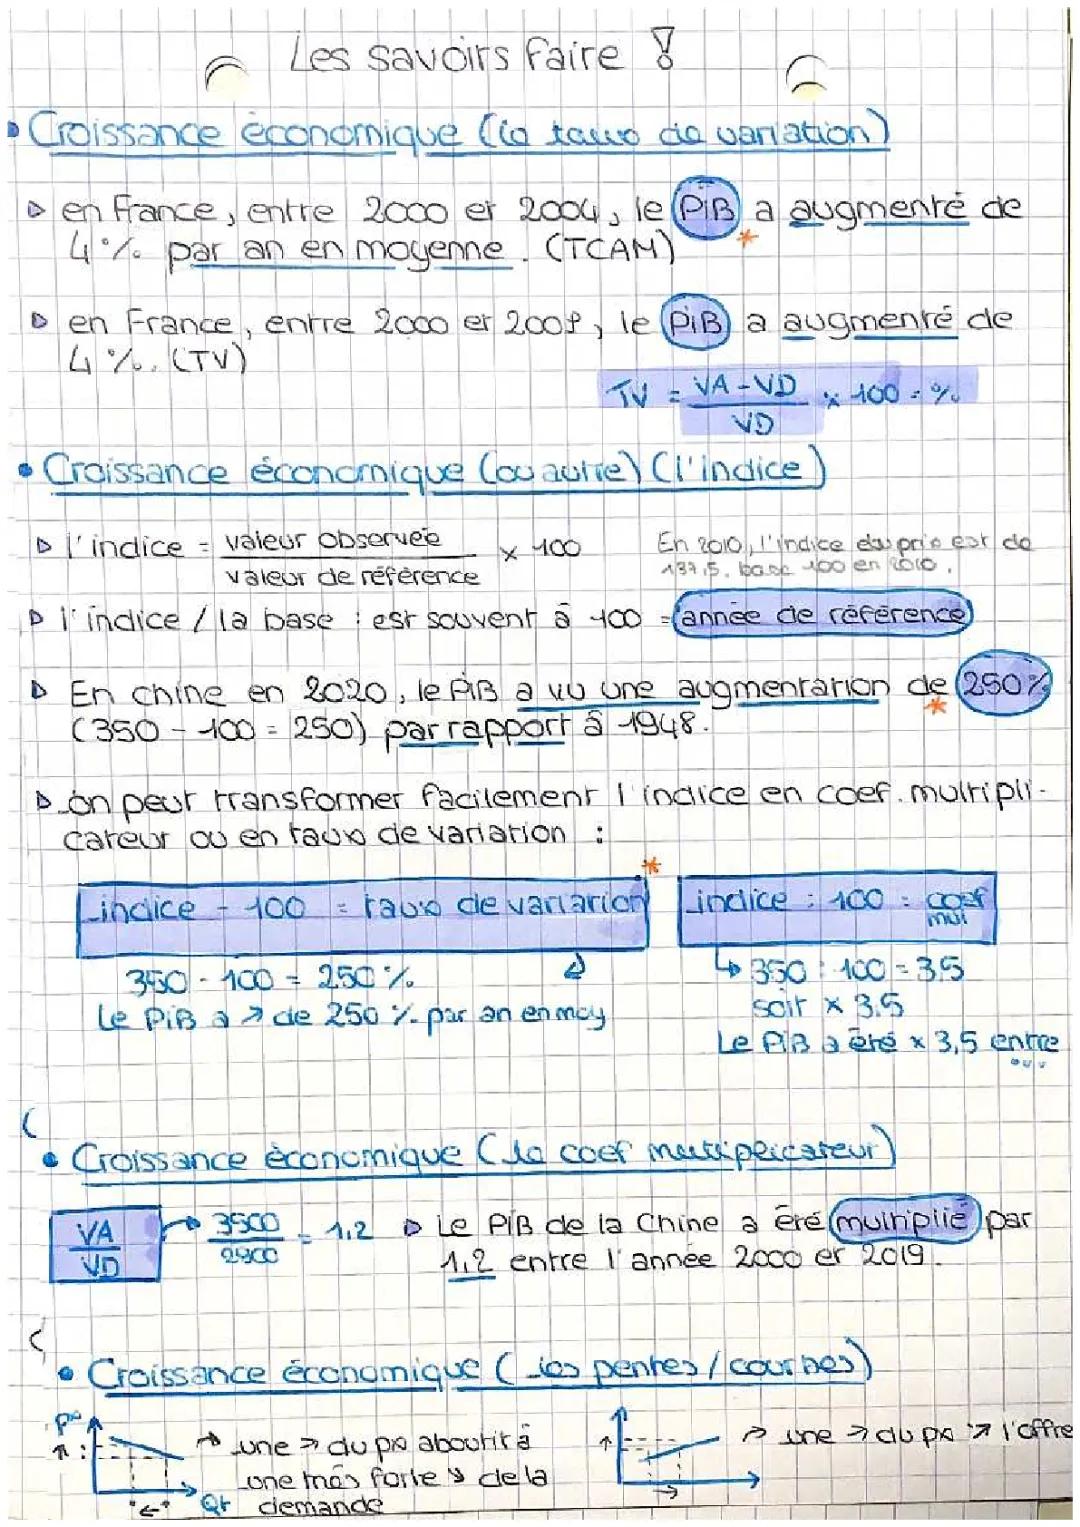 Les savoirs faire !
• Croissance économique (le taux de variation)
▷ en France, entre 2000 et 2004, le PiB a augmenté de
4% par an en moyenne. (TCAM) *
▷ en France, entre 2000 et 200, le PiB a augmenté de
4%. (TV)
TV = VA - VD / VD × 100 = %
• Croissance économique (ou autre) (l'indice)
▷ l'indice = valeur observée / valeur de référence × 100
En 2010, l'indice du prix est de
137,5. base 100 en 2010.
▷ l'indice / la base : est souvent à 100 = année de référence
▷ En chine en 2020, le PiB a vu une augmentation de 250%
(350 - 100 = 250) par rapport à 1948. *
▷ on peut transformer facilement l'indice en coef. multipli-
cateur ou en taux de variation :
indice - 100 = taux de variation *
indice : 100 = coef mul
350 - 100 = 250 %
Le PiB a ↗ de 250 % par an en moy
↳ 350 : 100 = 3,5
soit × 3,5
Le PiB a été × 3,5 entre ...
• Croissance économique (le coef multiplicateur)
VA / VD → 3500 / 2900 = 1,2
▷ Le PiB de la Chine a été multiplié par
1,2 entre l'année 2000 et 2019.
• Croissance économique (les pentes / courbes)
px
Qt
→ une ↗ du px aboutit à
une más forte ↘ de la
demande
→ une ↗ du px ↗ l'offre